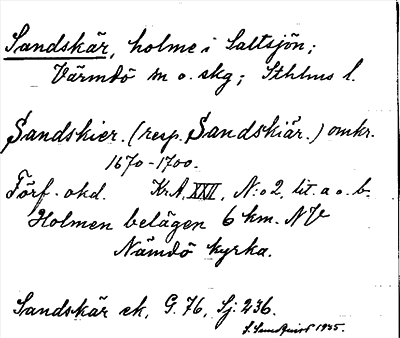 Sandskär, holme i Saltsjön;
Värmdö m o. skg; Sthlms l.
Sandskier. (resp. Sandskiär.) omkr.
1670-1700.
Förf. okd. Kr.A. XXII, N:o 2, lit. a o. b.
Holmen belägen 6 km. NV
Nämdö kyrka.
Sandskär ek, G. 76, Sj. 236.
1935.